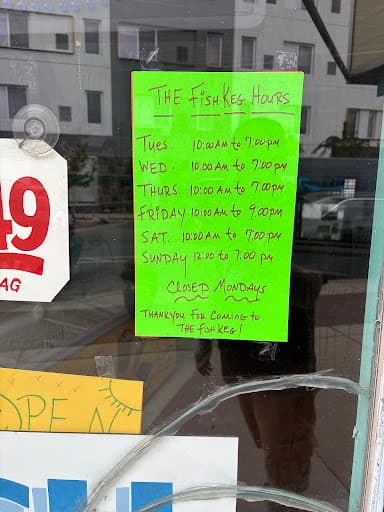 THE FISH KEG HOURS
TUES 10:00 AM to 7:00 PM
WED. 10:00 AM to 7:00 PM
THURS. 10:00 AM to 7:00 PM
FRIDAY 10:00 AM to 9:00 PM
SAT. 10:00 AM to 7:00 PM
SUNDAY 12:00 to 7:00 PM
CLOSED MONDAYS
THANK YOU FOR COMING TO
THE FISH KEG!
49
AG
OPEN